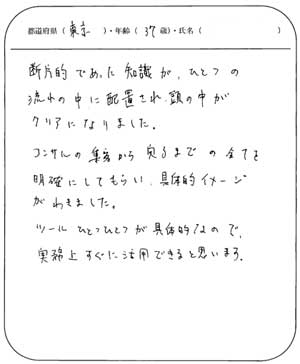 都道府県（東京）・年齢（37歳）・氏名（　　　　）
断片的であった知識が、ひとつの
流れの中に配置され、頭の中が
クリアになりました。
コンサルの集客から売るまでの全てを
明確にしてもらい、具体的イメージ
がわきました。
ツールひとつひとつが具体的なので、
実務上すぐに活用できると思います。